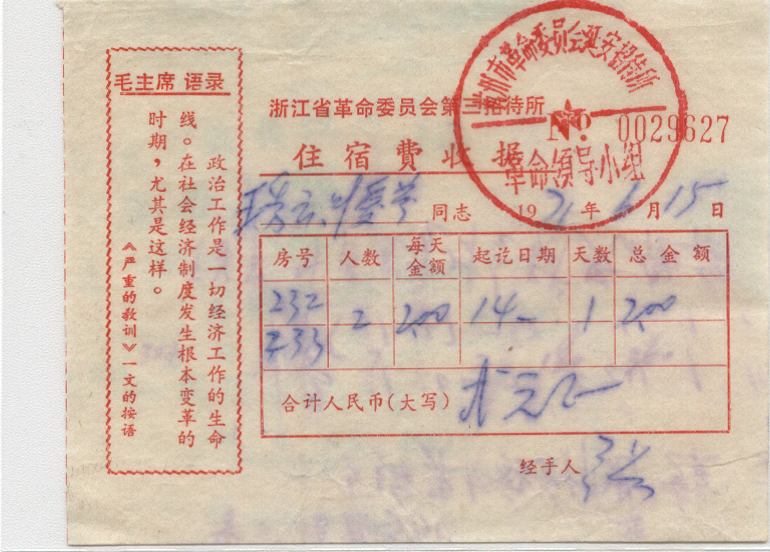 毛主席 语录
政治工作是一切经济工作的生命
线。在社会经济制度发生根本变革的
时期，尤其是这样。
《严重的教训》一文的按语
浙江省革命委员会第二招待所
住宿费收据
№ 0029627
州市革命委员会延安招待所
革命领导小组
同志 1971年6月15日
房号 人数 每天金额 起讫日期 天数 总金额
232 2 2.00 14- 1 2.00
233
合计人民币(大写) 元
经手人